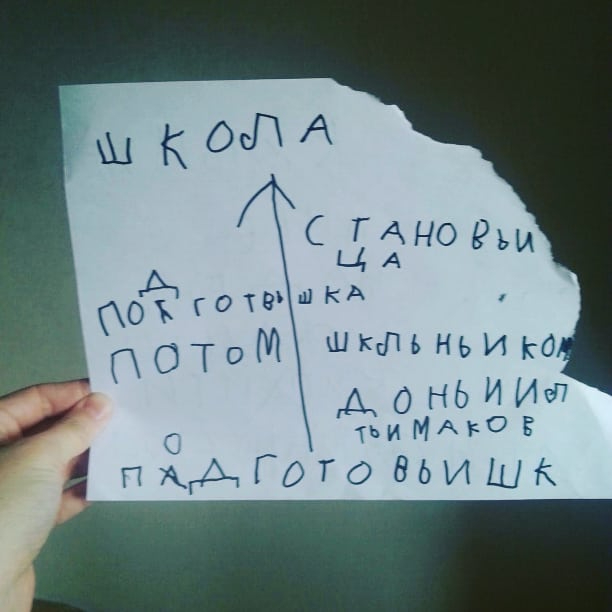 ШКОЛА
СТАНОВЬИ
ЦА
Д
ПОКГОТВЬИШКА
ПОТОМ ШКЛЬНЬИКОМ
ДОНЬИИЛ
ТЬИМАКОВ
О
ПАДГОТОВЬИШК